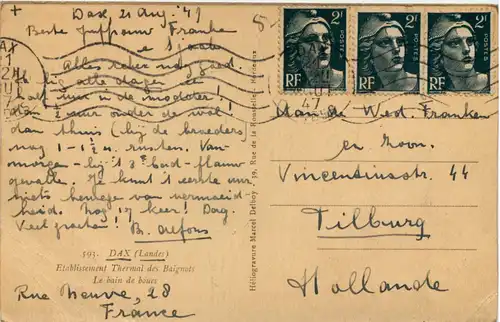 + Dax, 21 Aug. '47
Beste Juffrouw Franke
e
Alles zeker nog goed.
Ik lig alle dagen een
half uur in de modder!
dan ½ uur onder de wol!
dan thuis (bij de broeders)
nog 1 - 1½ u. rusten. Van-
morgen - bij 't 3e bad - flauw
gevallen. Je kunt 't eerste uur
niets van vermoeid-
heid. Nog 17 keer! Dag.
Veel groeten! Br. Alfons
593. DAX (Landes)
Etablissement Thermal des Baignots
Le bain de boues
Rue Neuve, 28
France
Héliogravure Marcel Delboy - 39, Rue de la Bordeaux
2F
POSTES
RF
2F
POSTES
RF
2F
POSTES
RF
DAX
47
Aan de Wed. Franken
en Zoon.
Vincentiusstr. 44
Tilburg
Hollande